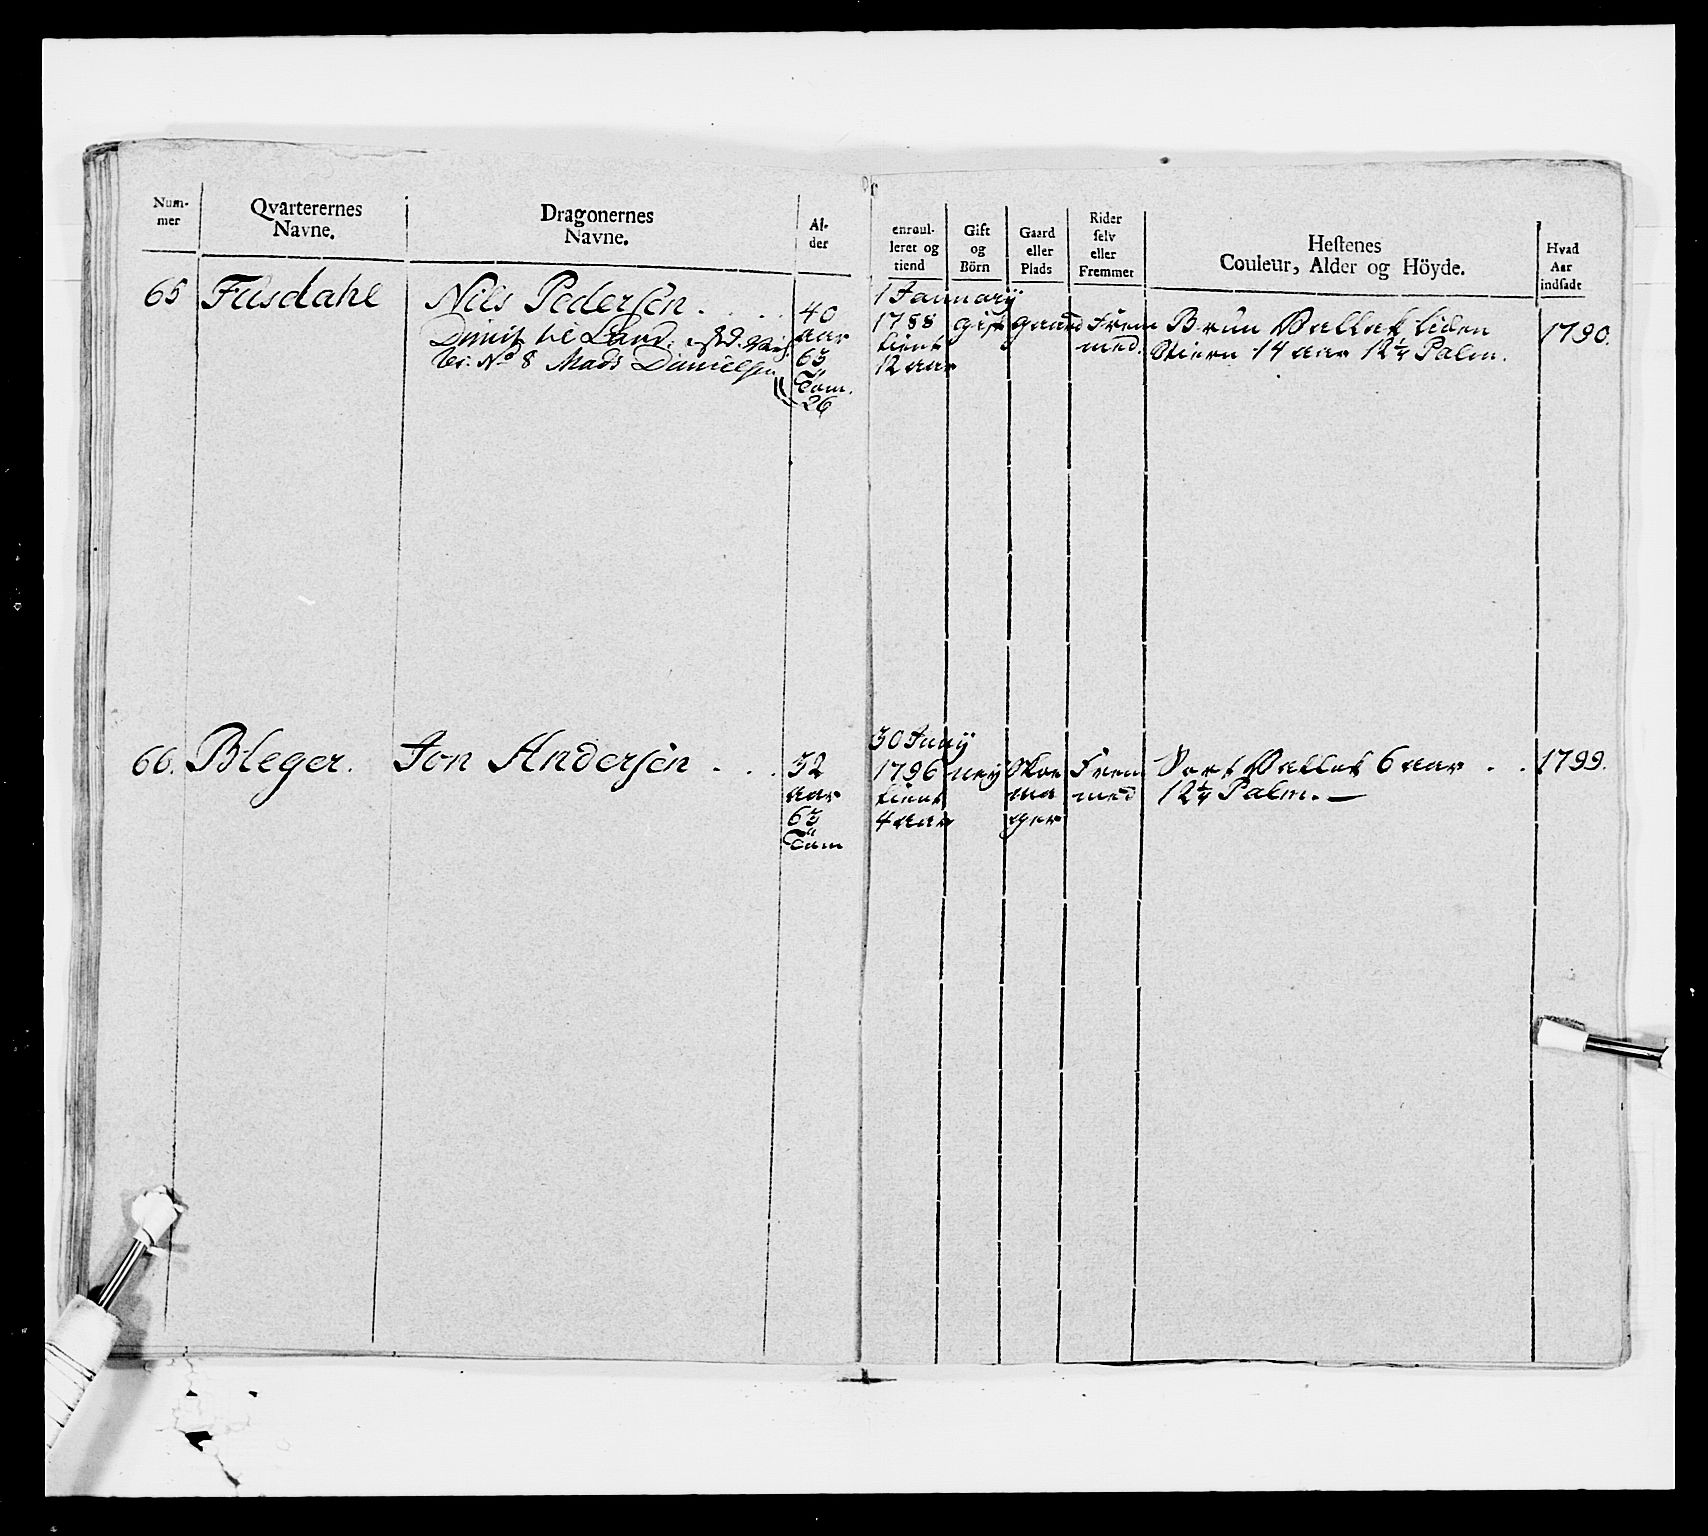 Num-
mer
Qvarterernes
Navne.
Dragonernes
Navne.
Al-
der
enroul-
leret og
tiend
Gift
og
Börn
Gaard
eller
Plads
Rider
selv
eller
Fremmet
Hestenes
Couleur, Alder og Höyde.
Hvad
Aar
indsadt
65 Fusdahl Nils Pedersen . . . .
Dimit. til Land. 
No 8 Mads Danielsen
40
aar
63
Tom.
26
1 January
1788
tient
12 aar
gift
gaard
Frem
med.
Brun Vallak liden
Stiern 14 aar 12 1/4 Palm.
1790.
66. Bleger. Jon Andersen . . .
32
aar
63
Tom
30 Juny
1796
tient
4 aar
ney
Skoe
ma
ger
Frem
med
Sort Vallak 6 aar . .
12 1/4 Palm. —
1799.